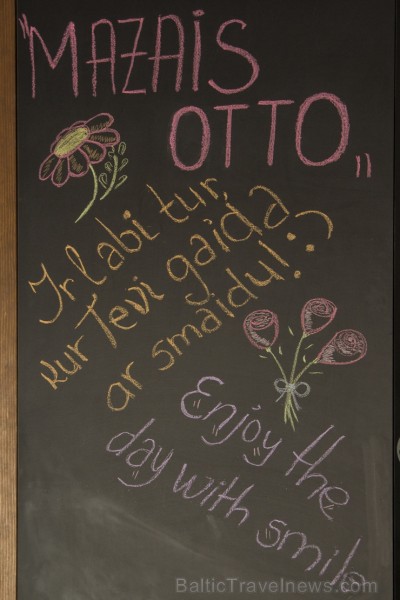 "MAZAIS
OTTO"
Ir labi tur,
kur Tevi gaida
ar smaidu! :)
Enjoy the
day with smile
BalticTravelnews.com